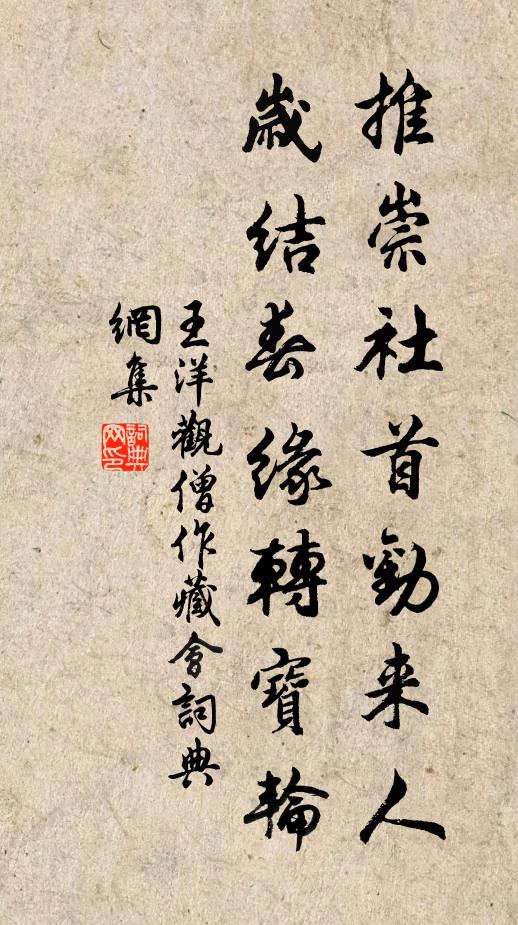 推崇社首勸来人
歲结春緣轉寶輪
王洋觀僧作藏會詞典
網集
詞典
网印